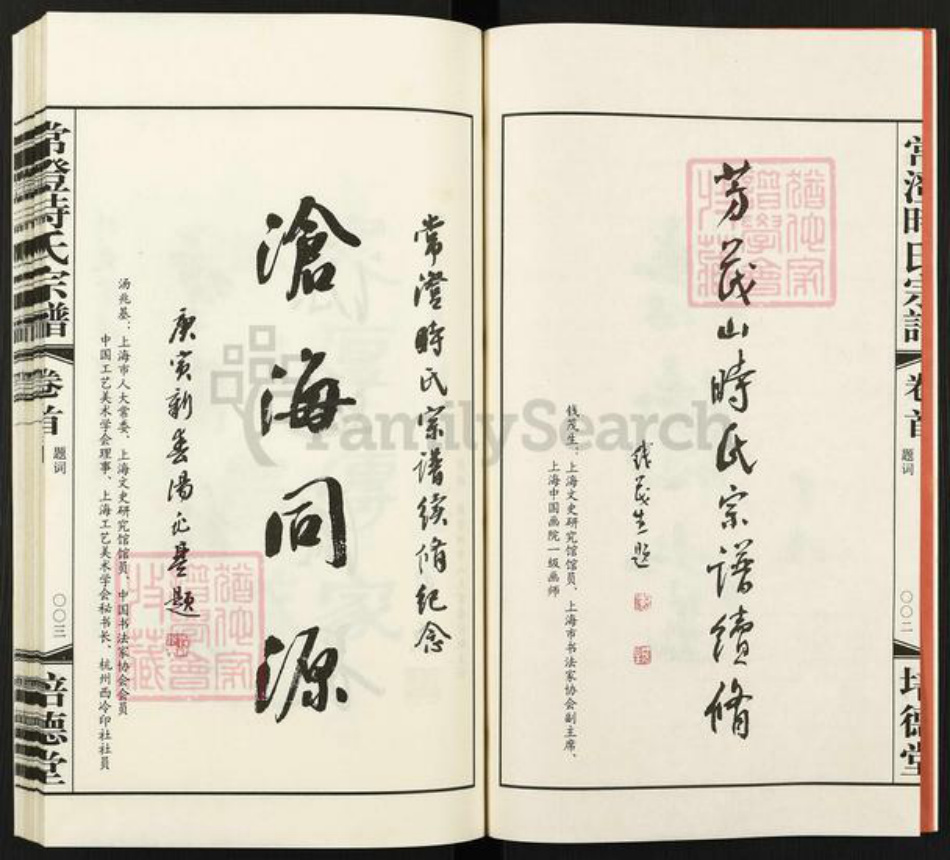 常澄時氏宗譜
卷首
题词
〇〇二
培德堂
芳茂山時氏宗譜續修
钱茂生题
钱茂生：上海文史研究馆馆员、上海市书法家协会副主席、
上海中国画院一级画师
常澄時氏宗谱续脩纪念
滄海同源
庚寅新春湯兆基题
汤兆基：上海市人大常委、上海文史研究馆馆员、中国书法家协会会员
中国工艺美术学会理事、上海工艺美术学会秘书长、杭州西泠印社社员
常澄時氏宗譜
卷首
题词
〇〇三
培德堂
FamilySearch